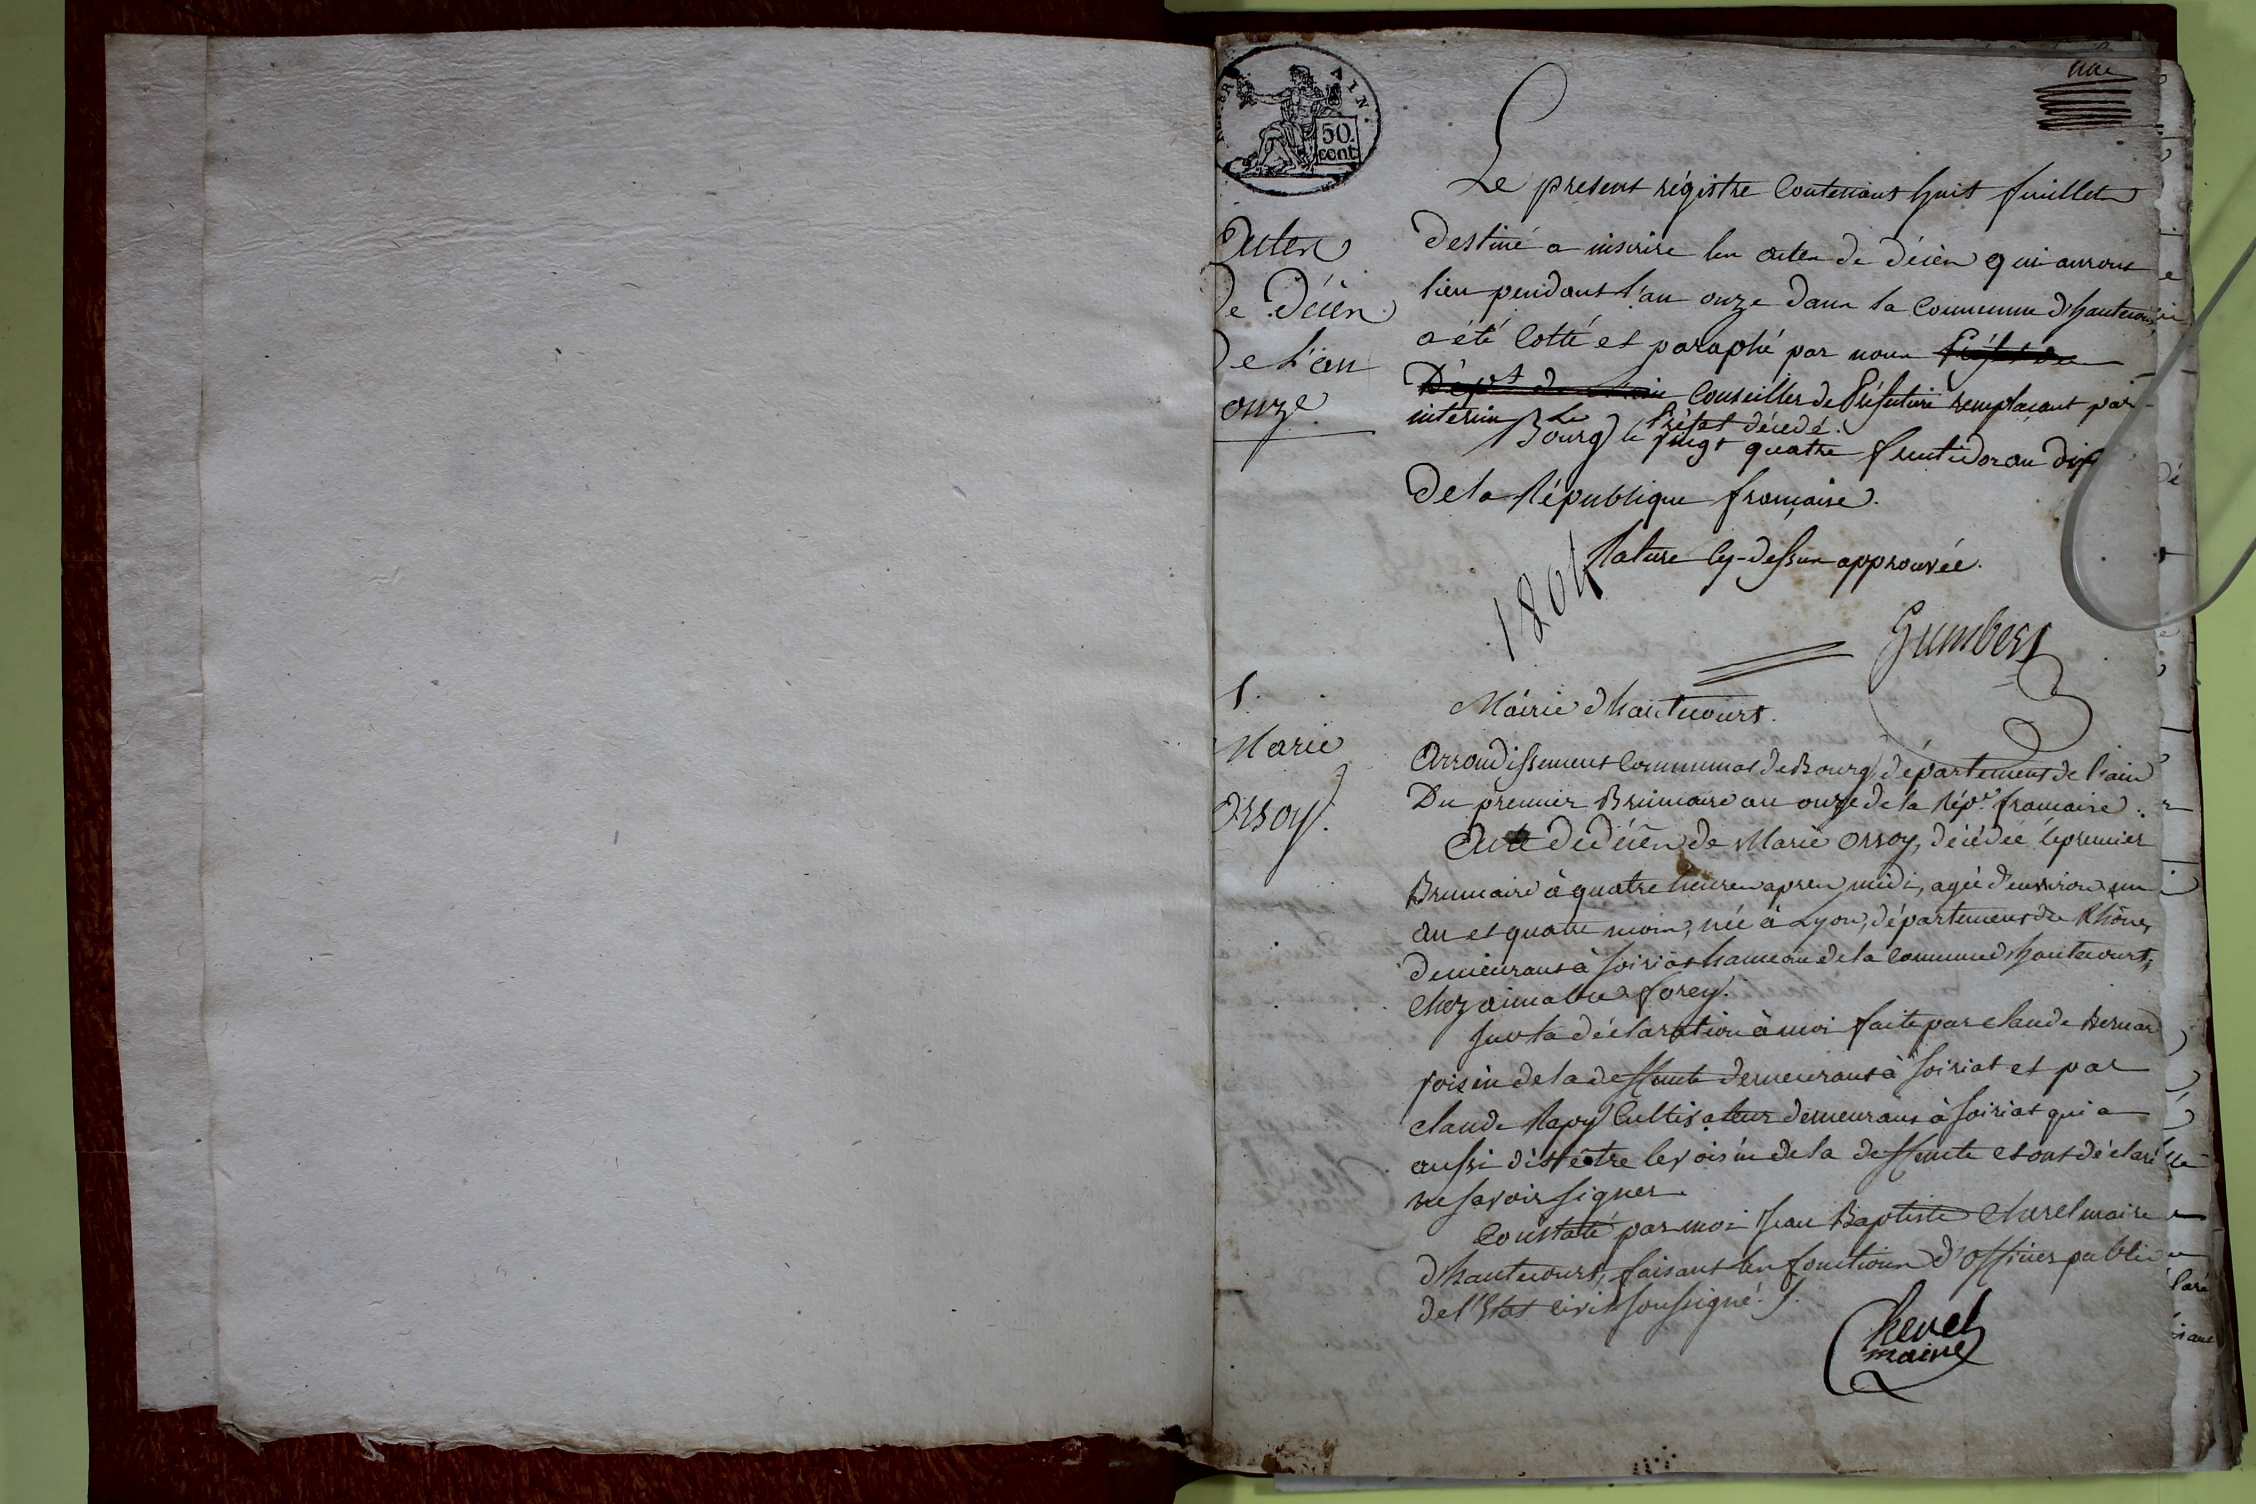 une
AIN.
50.
cent
Actes
de Décès
de L'an
onze
Le present régistre Contenant huit feuillets
destiné a inscrire les actes de décès qui auront
lieu pendant l'an onze dans la Commune d'hautecour
a été Cotté et paraphé par nous Préfet du
Dépt de l'ain Conseiller de Préfecture remplacant par
interim Le Préfet décedé.
Bourg le vingt quatre fructidor an dix
de la République française.
Rature cy-dessus approuvée.
1802
Gumbert
Mairie d'hautecourt.
1.
Marie
Orsoy.
Arrondissement Communal de Bourg département de l'ain
Du premier Brumaire an onze de la Répe. francaise.
Acte de décès de Marie Orsoy, décédée le premier
Brumaire à quatre heures apres midi, agée d'environ un
an et quatre mois, née à Lyon, département du Rhône,
demeurant à Soiriat hameau de la Commune d'hautecourt,
chez aimable forey.
Sur la déclaration à moi faite par claude Bernard
voisin de la deffunte demeurant à Soiriat et par
claude Rapy Cultivateur demeurant à Soiriat qui a
aussi dit être le voisin de la deffunte et ont déclaré
ne savoir signer.
Constaté par moi Jean Baptiste Chevel maire
d'hautecourt, faisant les fonctions d'officier public
de l'Etat civil soussigné.
Chevel
maire